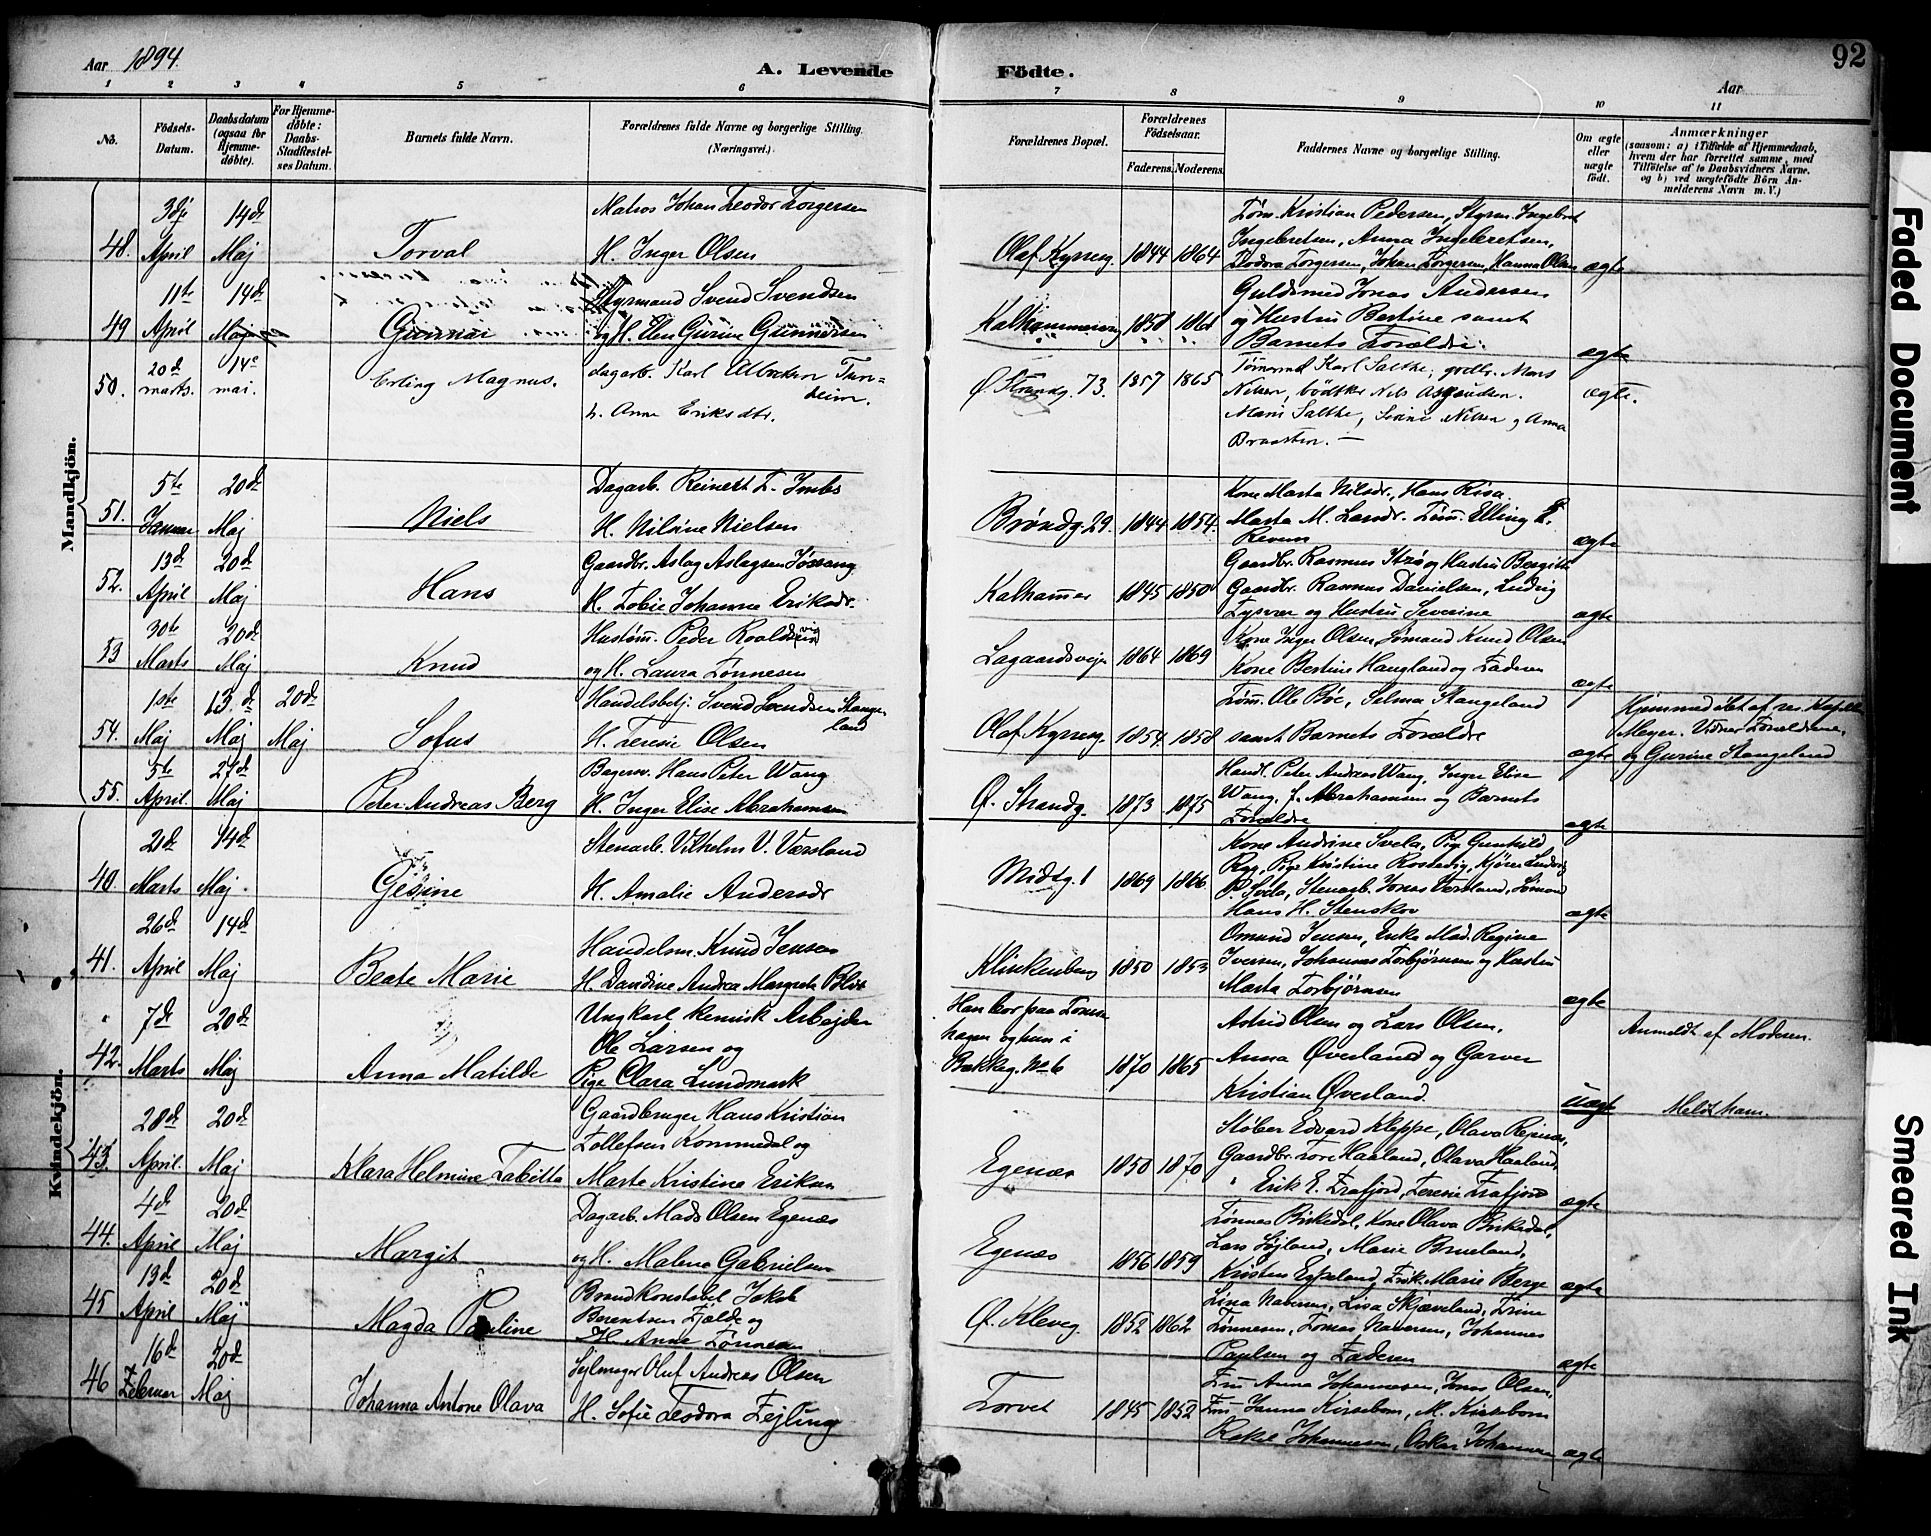 Aar 1894.
A. Levende Födte.
Aar
92
1 2 3 4 5 6 7 8 9 10 11
No.
Födsels-Datum.
Daabsdatum (ogsaa for Hjemme-döbte).
For Hjemme-döbte: Daabs-Stadfæstel-ses Datum.
Barnets fulde Navn.
Forældrenes fulde Navne og borgerlige Stilling.
(Næringsvei.)
Forældrenes Bopæl.
Forældrenes Födselsaar.
Faderens. Moderens.
Faddernes Navne og borgerlige Stilling.
Om ægte eller uægte født.
Anmærkninger
(saasom: a) i Tilfælde af Hjemmedaab,
hvem der har forrettet samme, med
Tilföielse af to Daabsvidners Navne,
og b) ved uægtefödte Börn An-
melderens Navn m. V.)
Mandkjön.
48. 3dje April 14de Maj Torval
Matros Johan Teodor Torgersen
H. Inger Olsen
Olaf Kyrresg. 1844 1864
Tøm. Kristian Pedersen, Styrm. Ingebret
Ingebretsen, Anna Ingebretsen,
Teodora Torgersen, Johan Torgersen, Hanna Olsen ægte
49 11te April 14de Maj Gunnar
Styrmand Svend Svendsen
og H. Elen Gurine Gunnarsen
Kalhammeren 1858 1861
Guldsmed Jonas Andersen
og Hustru Bertine samt
Barnets Forældre. ægte
50. 20de marts. 14de mai. Erling Magnus.
dagarb. Karl Albreksen Tun-
heim.
h. Anne Eriksdtr.
Ø. Strandg. 73. 1857 1865
Tømermd Karl Salthe, Mars
Nilsen, bødtker Nils
Marie Salthe, Nilsen og Anna
ægte.
51. 5te Januar 20de Maj Niels
Dagarb. Reinert T.
H. Nilsine Nielsen
Brøndg. 29. 1844 1854.
Kone Marta Nilsdr., Hans Risa.
Marta M. Tøm. Elling
ægte
52. 13de April 20de Maj Hans
Gaardbr. Aslag Aslagsen Jøssang
H. Tobie Johanne Eriksdr.
Kalhammer 1845 1850
Gaardbr. Rasmus og Hustru Bergitte
Gaardbr. Rasmus Danielsen, Ludvig
Tysvær og Hustru Severine ægte
53 30te Marts 20de Maj Knud
Hustøm. Peder Roaldsvig
og H. Laura Tønnesen
Lagaardsvejen 1864 1869
Kone Inger Olsen, Sømand Knud Olsen
Kone Bertine Haugland og Faderen ægte
54. 1ste Maj 13.de Maj 20de Maj Sofus
Handelsbetj. Svend Svendsen Stange-
land
H. Teresie Olsen
Olaf Kyrresg. 1854. 1858
Tøm. Ole Bøe, Selma Stangeland
samt Barnets Forældre ægte
Hjemmedøbt af res. Kapellan
Meyer. Vidner Forældrene,
og Gurine Stangeland
55. 5te April 27de Maj Peter Andreas Berg
Bagersv. Hans Peter Wang
H. Inger Elise Abrahamsen
Ø. Strandg. 1873 1875
Handl. Peter Andreas Wang, Inger Elise
Wang, J. Abrahamsen og Barnets
Forældre ægte
Kvindekjön.
40. 21de Marts 14de Maj. Gesine
Stenarb. Vilhelm V. Værsland
H. Amalie Andersdr
Midtg. 1 1869 1866
Kone Andrine Svela, Pige Gunhild
Ryg, Pige Kristine Kjører Ludvig
P. Svela, Stenarb. Jonas Værsland, Sømand
Hans H. Stenskov ægte
41. 26de April 14de Maj Beate Marie
Handelsm. Knud Jensen
H. Dandine Andrea Margrete
Klinkenberg 1850 1853
Omund Jensen, Enke Mad. Regine
Iversen, Johannes Torbjørnsen og Hustru
Marta Torbjørnsen ægte
42. 7de Marts 20de Maj Anna Matilde
Ungkarl kemisk Arbejder
Ole Larsen og
Pige Clara Lundmark
Han bor paa Tomme-
hagen og hun i
Bakkeg. No 6 1870 1865
Astrid Olsen og Lars Olsen.
Anna Øverland og Garver
Kristian Øverland. uægte
Anmeldt af Moderen.
Meldt ham.
43. 28de April. 20de Maj Klara Helmine Tabitta
Gaardbruger Hans Kristian
Tollefsen Kommedal og
Marte Kristine Eriksen
Egenæs 1850 1870
Støber Edvard Kleppe, Olava
Gaardbr. Tore Haaland, Olava Haaland,
" Erik E. Frafjord, Teresie Frafjord ægte
44. 4de April 20de Maj Margit
Dagarb. Mads Olsen Egenæs
og H. Malena Gabrielsen
Egenæs 1856 1859
Tønnes Birkedal, Kone Olava Birkedal,
Lars Marie Brueland,
Kristen Espeland, Frøk. Marie Berge ægte
45 13de April 20de Maj Magda Pauline
Brandkonstabel Jakob
Berentsen Fjælde og
H. Anne Tønnesen
Ø. Kleveg. 1852 1862
Lina Lisa Skjæveland, Trine
Tønnesen, Tomas Johannes
Paulsen og Faderen ægte
46 16de Februar 20de Maj Johanna Antone Olava
Sejlmager Oluf Andreas Olsen
H. Sofie Teodora Fejling
Torvet 1845 1852
Fru Anna Johannesen, Jonas Olsen,
Fru Janna Kirsebom, M. Kirsebom
Rakel Johannesen, Oskar Johannesen ægte
Faded Document
Smeared Ink